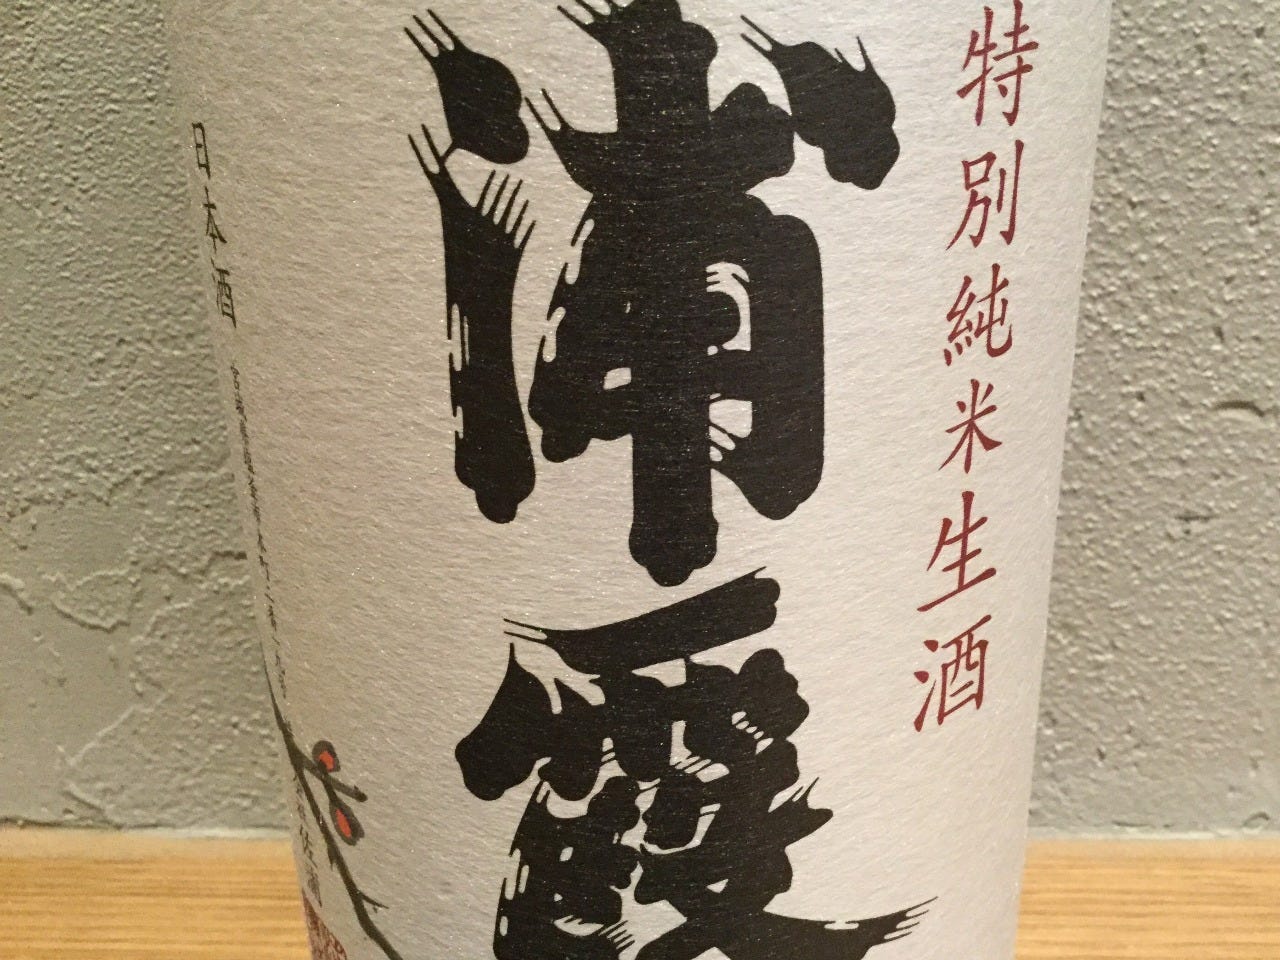 特別純米生酒
浦霞
日本酒